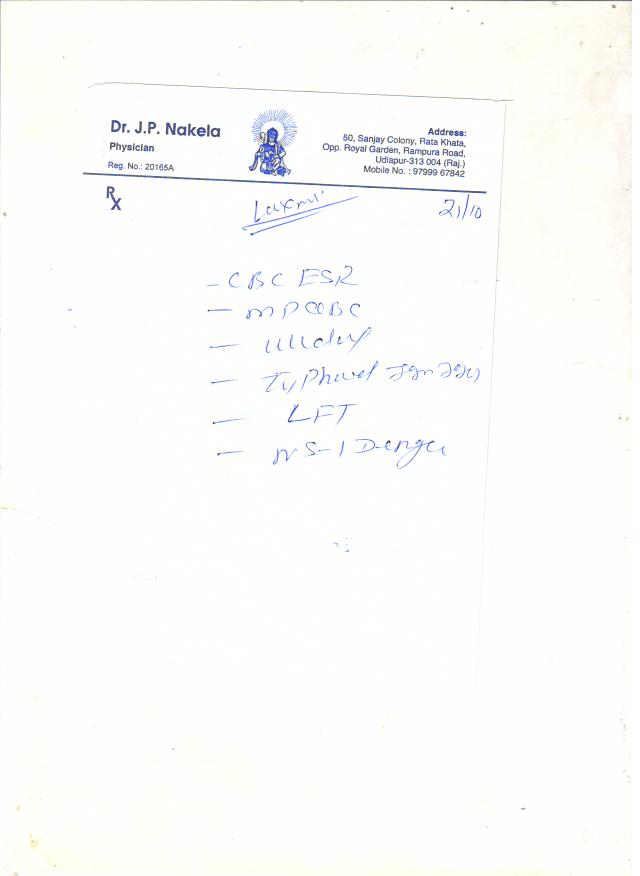 Dr. J.P. Nakela
Physician
Reg. No.: 20165A
Address:
50, Sanjay Colony, Rata Khata,
Opp. Royal Garden, Rampura Road,
Udiapur-313 004 (Raj.)
Mobile No. : 97999 67842
Rx
Laxmi
21/10
- CBC ESR
- MP QBC
- Widal
- Typhoid IgM IgG
- LFT
- NS-1 Dengue